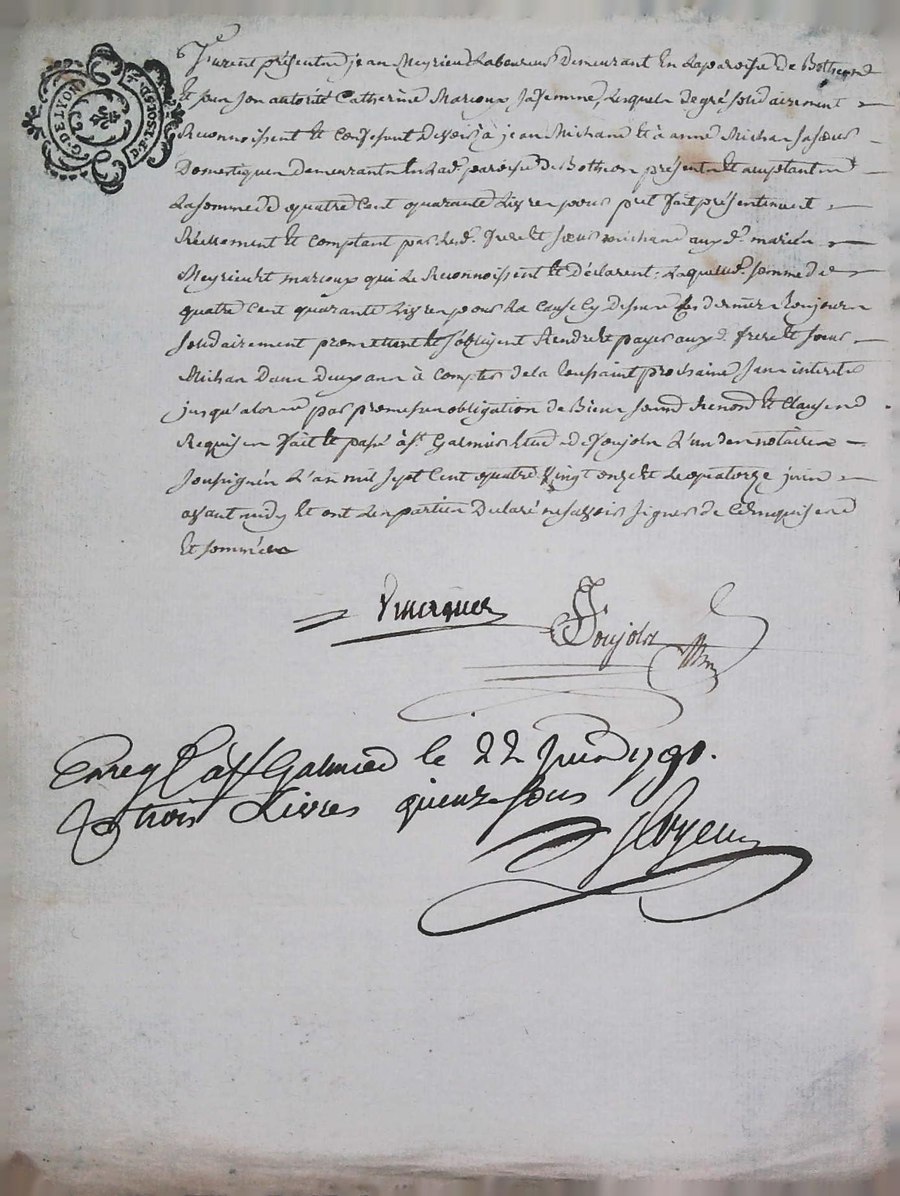 G. DE LYON
2. S. 6 D. POST. P. F.
Furent présents jean Meyrieu Laboureur demeurant En Laparoisse de Botheond
Et sous son autorité Catherine Marcoux safemme, Lesquels degré solidairement
Reconnoissent Et Confessent Devoir à jean Michand Et à anne Michan sasœur
Domestiques demeurants En Lad. paroisse de Botheon présents Et acceptants
La somme de quatre Cent quarante Livres pour prêt fait présentement
Réellement Et Comptant par Lesd. frere Et sœur michand aux d. mariés
Meyrieu Et marcoux qui Le Reconnoissent Et déclarent; Laquelle d. somme de
quatre Cent quarante Livres pour La Cause Cy dessus Les derniers Conjoints
solidairement promettent Et s'obligent Rendre Et payer aux d. frere Et sœur
Michan Dans Deux ans à Compter de la Toussaint prochaine sans interets
jusqu'alors par promesses obligation de Biens soumd. Renond. Et Clauses
Requises fait Et passé à St. Galmier Etude de Soujols L'un des notaires
soussignés L'an mil sept Cent quatre vingt onze Et Le quatorze juin
avant midy Et ont Les parties Déclaré ne savoir signer de Ce Enquises
Et sommées
Soujols
Enreg. à St Galmier le 22 Juin 1791.
R trois Livres quinze sous